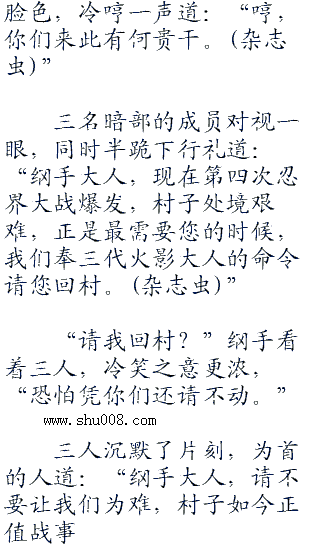 脸色，冷哼一声道：“哼，
你们来此有何贵干。(杂志
虫)”
三名暗部的成员对视一
眼，同时半跪下行礼道：
“纲手大人，现在第四次忍
界大战爆发，村子处境艰
难，正是最需要您的时候，
我们奉三代火影大人的命令
请您回村。(杂志虫)”
“请我回村？”纲手看
着三人，冷笑之意更浓，
“恐怕凭你们还请不动。”
www.shu008.com
三人沉默了片刻，为首
的人道：“纲手大人，请不
要让我们为难，村子如今正
值战事